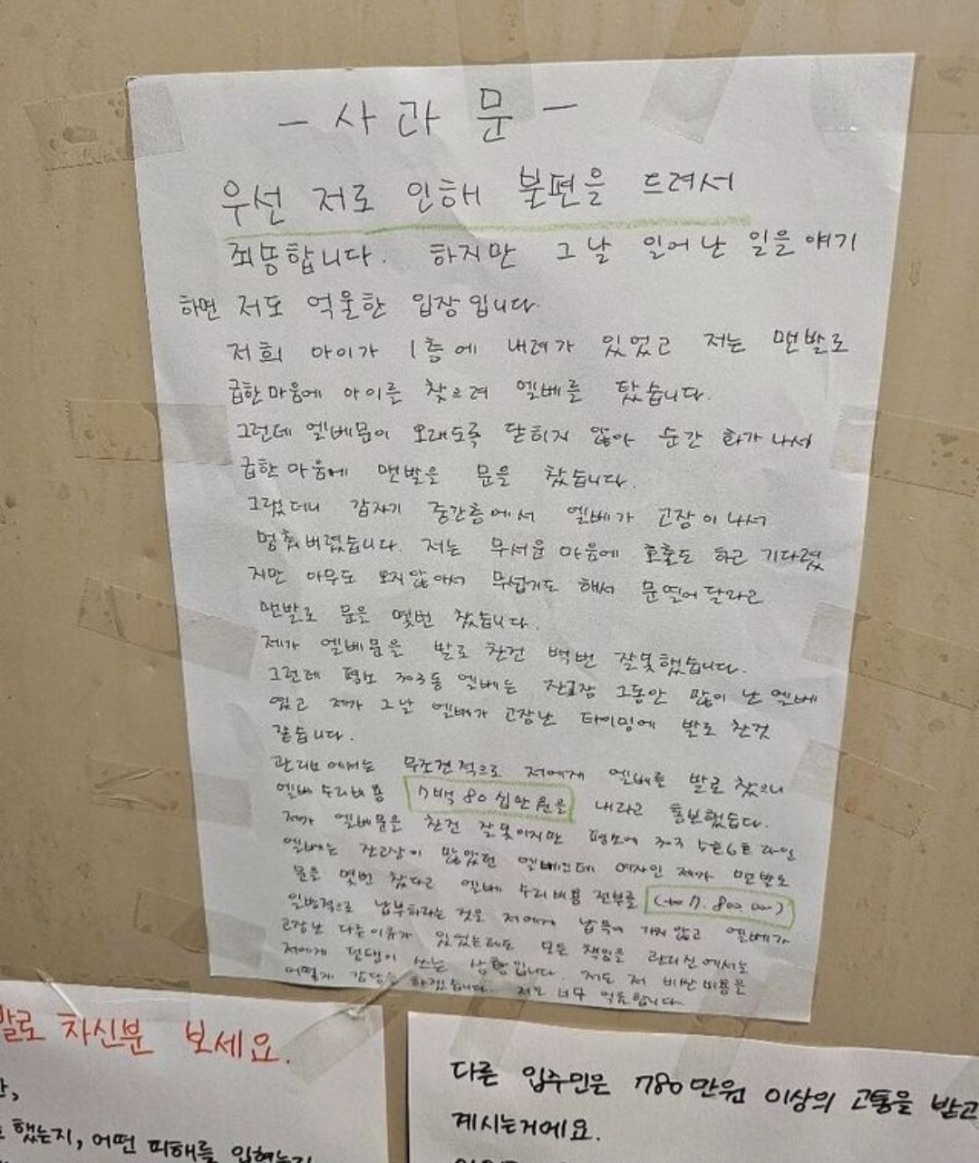 - 사과문 -
우선 저로 인해 불편을 드려서
죄송합니다. 하지만 그날 일어난 일을 얘기
하면 저도 억울한 입장입니다.
저희 아이가 1층에 내려가 있었고 저는 맨발로
급한마음에 아이를 찾으려 엘베를 탔습니다.
그런데 엘베문이 오래도록 닫히지 않아 순간 화가 나서
급한 마음에 맨발을 문을 찼습니다.
그랬더니 갑자기 중간층에서 엘베가 고장이 나서
멈춰버렸습니다. 저는 무서운 마음에 호출도 하고 기다렸
지만 아무도 오지않아서 무섭기도 해서 문열어 달라고
맨발로 문을 몇번 찼습니다.
제가 엘베문을 발로 찬건 백번 잘못했습니다.
그런데 평소 303동 엘베는 잔고장 그동안 많이 난 엘베
였고 제가 그날 엘베가 고장난 타이밍에 발로 찬것
같습니다.
관리소에서는 무조건적으로 저에게 엘베를 발로 찼으니
엘베 수리비용 7백 80십만원을 내라고 통보했습다.
제가 엘베문을 찬건 잘못이지만 평소에 303 5호6호 라인
엘베는 잔고장이 많았던 엘베인데 여자인 제가 맨발로
문을 몇번 찼다고 엘베 수리비용 전부를 7.800.000)
일방적으로 납부하라는 것은 저에게 납득이 가지 않고 엘베가
고장난 다른이유가 있었는데도 모든 책임을 관리실에서는
저에게 쓰는 상황입니다. 저도 저 비싼비용을
어떻게 감당을 하겠습니다. 저도 너무 억울합니다.
발로 차신분 보세요.
했는지, 어떤 피해를 입혔는지
다른 입주민은 780만원 이상의 고통을 받고
계시는거에요.